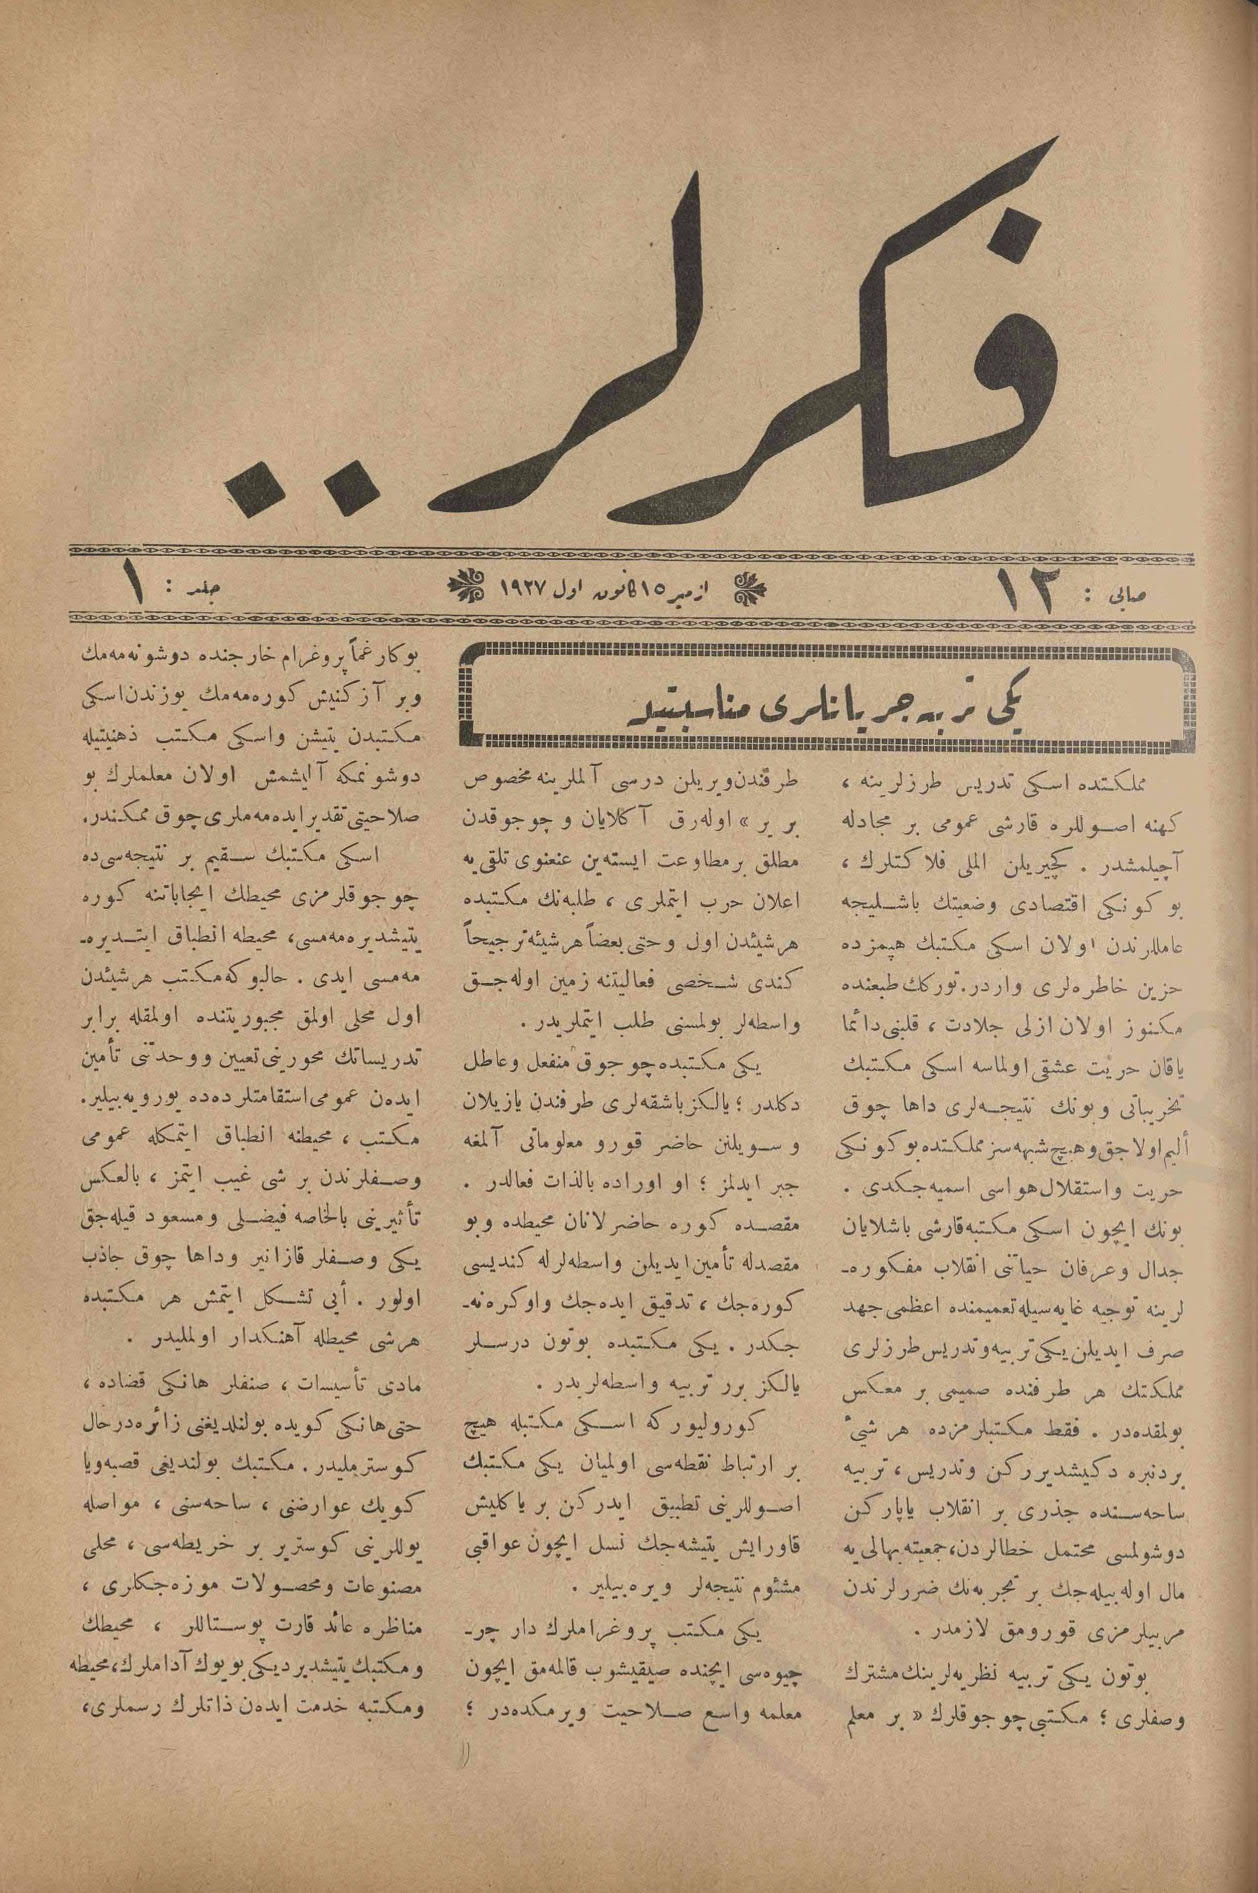 فكرلر..
صایی : ١٢
ازمیر ١٥ كانون اول ١٩٢٧
جلد : ١
یكی تربیه جریانلری مناسبتیله
مملكتده اسكی تدریس طرزلرینه ،
كهنه اصوللره قارشی عمومی بر مجادله
آچیلمشدر . كچیریلن الملی فلاكتلرك ،
بو كونكی اقتصادی وضعیتك باشلیجه
عامللرندن اولان اسكی مكتبك هپمزده
حزین خاطره‌لری واردر. توركك طبعنده
مكنوز اولان ازلی جلادت ، قلبنی دائما
یاقان حریت عشقی اولماسه اسكی مكتبك
تخریباتی وبونك نتیجه‌لری داها چوق
ألیم اولاجق وهیچ شبهه‌سز مملكتده بو كونكی
حریت واستقلال هواسی اسمیه‌جكدی .
بونك ایچون اسكی مكتبه قارشی باشلایان
جدال وعرفان حیاتنی انقلاب مفكوره‌ـ
لرینه توجیه غایه‌سیله تعمیمنده اعظمی جهد
صرف ایدیلن یكی تربیه وتدریس طرزلری
مملكتك هر طرفنده صمیمی بر معكس
بولمقده‌در . فقط مكتبلرمزده هر شیئ
بردنبره دكیشدیرركن وتدریس ، تربیه
ساحه‌سنده جذری بر انقلاب یاپاركن
دوشولمسی محتمل خطالردن، جمعیته بهالی یه
مال اوله‌بیله‌جك بر تجربه‌نك ضررلرندن
مربیلرمزی قورومق لازمدر .
بوتون یكی تربیه نظریه‌لرینك مشترك
وصفلری ؛ مكتبی چوجوقلرك « بر معلم
طرفندن ویریلن درسی آلملرینه مخصوص
بر یر » اوله‌رق آكلایان و چوجوقدن
مطلق بر مطاوعت ایسته‌ین عنعنوی تلقی یه
اعلان حرب ایتملری ، طلبه‌نك مكتبده
هرشیئدن اول وحتی بعضاً هرشیئه ترجیحاً
كندی شخصی فعالیتنه زمین اوله‌جق
واسطه‌لر بولمسنی طلب ایتملریدر .
یكی مكتبده چوجوق منفعل وعاطل
دكلدر ؛ یالكز باشقه‌لری طرفندن یازیلان
و سویلنن حاضر قورو معلوماتی آلمغه
جبر ایدلمز ؛ او اوراده بالذات فعالدر .
مقصده كوره حاضرلانان محیطده وبو
مقصدله تأمین ایدیلن واسطه‌لرله كندیسی
كوره‌جك ، تدقیق ایده‌جك واوكره‌نه‌ـ
جكدر . یكی مكتبده بوتون درسلر
یالكز برر تربیه واسطه‌لریدر .
كورولیوركه اسكی مكتبله هیچ
بر ارتباط نقطه‌سی اولمیان یكی مكتبك
اصوللرینی تطبیق ایدركن بر یاكلیش
قاورایش یتیشه‌جك نسل ایچون عواقبی
مشئوم نتیجه‌لر ویره‌بیلیر .
یكی مكتب پروغراملرك دار چرـ
چیوه‌سی ایچنده صیقیشوب قالمه‌مق ایچون
معلمه واسع صلاحیت ویرمكده‌در ؛
بوكا رغماً پروغرام خارجنده دوشونه‌مه‌مك
وبر آز كنیش كوره‌مه‌مك یوزندن اسكی
مكتبدن یتیشن واسكی مكتب ذهنیتیله
دوشونمكه آلیشمش اولان معلملرك بو
صلاحیتی تقدیر ایده‌مه‌ملری چوق ممكندر.
اسكی مكتبك سقیم بر نتیجه‌سی ده
چوجوقلرمزی محیطك ایجاباتنه كوره
یتیشدیره‌مه‌مسی، محیطه انطباق ایتدیره‌ـ
مه‌مسی ایدی . حالبوكه مكتب هرشیئدن
اول محلی اولمق مجبوریتنده اولمقله برابر
تدریساتك محورینی تعیین ووحدتنی تأمین
ایده‌ن عمومی استقامتلرده‌ده یورویه‌بیلیر.
مكتب ، محیطنه انطباق ایتمكله عمومی
وصفلرندن بر شی غیب ایتمز ، بالعكس
تأثیرینی بالخاصه فیضلی ومسعود قیله‌جق
یكی وصفلر قازانیر وداها چوق جاذب
اولور . أیی تشكل ایتمش هر مكتبده
هرشی محیطله آهنكدار اولملیدر .
مادی تأسیسات ، صنفلر هانكی قضاده ،
حتی هانكی كویده بولندیغنی زائره درحال
كوسترملیدر. مكتبك بولندیغی قصبه ویا
كویك عوارضنی ، ساحه‌سنی ، مواصله
یوللرینی كوستریر بر خریطه‌سی ، محلی
مصنوعات ومحصولات موزه‌جكلری ،
مناظره عائد قارت پوستاللر ، محیطك
ومكتبك یتیشدیردیكی بویوك آداملرك، محیطه
ومكتبه خدمت ایده‌ن ذاتلرك رسملری،